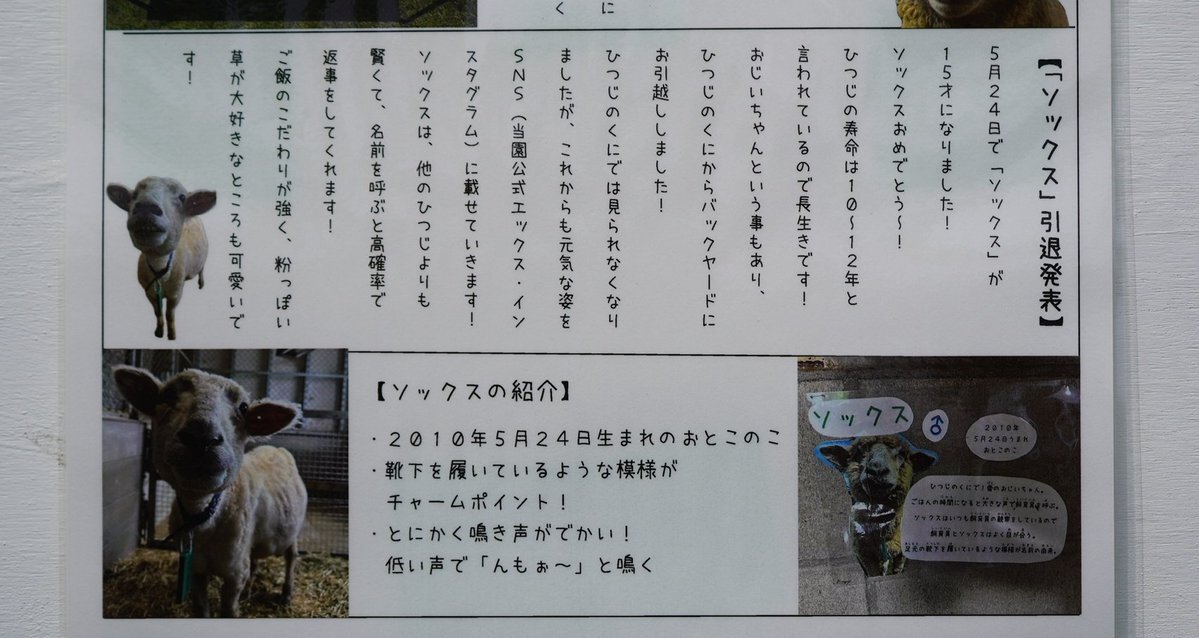 く
に
【「ソックス」引退発表】
5月24日で「ソックス」が
15才になりました！
ソックスおめでとう～！
ひつじの寿命は10～12年と
言われているので長生きです！
おじいちゃんという事もあり、
ひつじのくにからバックヤードに
お引越ししました！
ひつじのくにでは見られなくなり
ましたが、これからも元気な姿を
SNS（当園公式エックス・イン
スタグラム）に載せていきます！
ソックスは、他のひつじよりも
賢くて、名前を呼ぶと高確率で
返事をしてくれます！
ご飯のこだわりが強く、粉っぽい
草が大好きなところも可愛いで
す！
【ソックスの紹介】
・2010年5月24日生まれのおとこのこ
・靴下を履いているような模様が
チャームポイント！
・とにかく鳴き声がでかい！
低い声で「んもぉ～」と鳴く
ソックス
♂
2010年
5月24日うまれ
おとこのこ
ひつじのくにで1番のおじいちゃん。
ごはんの時間になると大きな声で飼育員を呼ぶ。
ソックスはいつも飼育員の観察をしているので
飼育員とソックスはよく目が合う。
足元の靴下を履いているような模様が名前の由来。